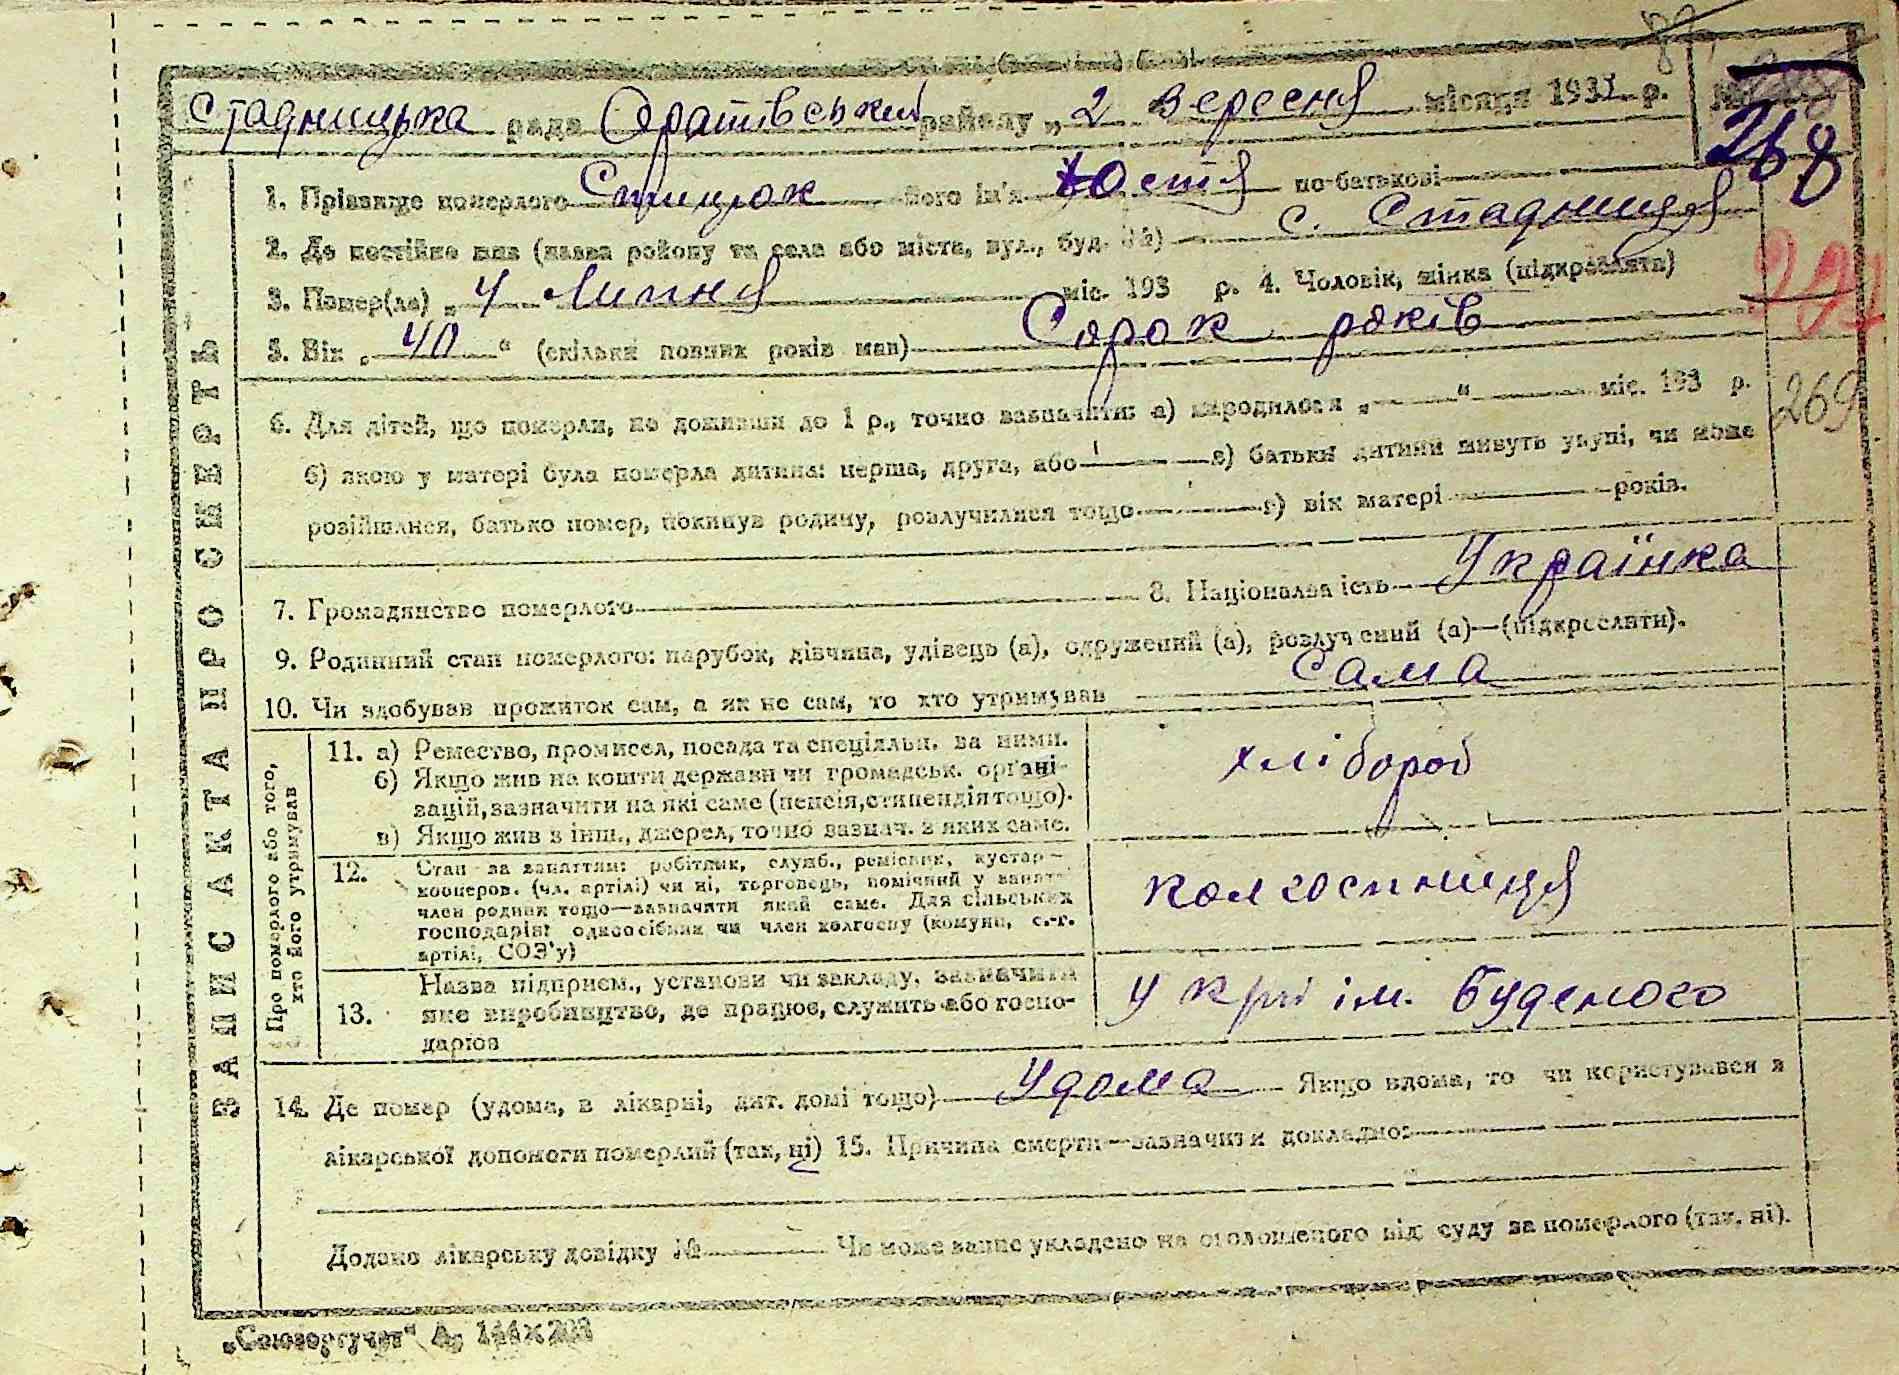 Стадницька рада Оратівський району „2 вересня місяця 1933 р. №
268
1. Прізвище померлого його ім'я Юстя по-батькові
2. Де постійно жив (назва району та села або міста, вул., буд. №) с. Стадниця
3. Помер(ла) „4 Липня міс. 193 р. 4. Чоловік, жінка (підкреслити)
291
5. Вік „40“ (скільки повних років мав) Сорок років
6. Для дітей, що померли, не доживши до 1 р., точно зазначити: а) народилося „ “ міс. 193 р.
269
б) якою у матері була померла дитина: перша, друга, або в) батьки дитини живуть укупі, чи може
розійшлися, батько помер, покинув родину, розлучилися тощо г) вік матері років.
7. Громадянство померлого 8. Національність Українка
9. Родинний стан померлого: парубок, дівчина, удівець (а), одружений (а), розлучений (а)—(підкреслити).
10. Чи здобував прожиток сам, а як не сам, то хто утримував Сама
ЗАПИС АКТА ПРО СМЕРТЬ
Про померлого або того,
хто його утримував
11. а) Ремество, промисел, посада та спеціяльн. за ними.
б) Якщо жив на кошти держави чи громадськ. органі-
зацій, зазначити на які саме (пенсія, стипендія тощо).
в) Якщо жив з інш., джерел, точно зазнач. з яких саме.
хлібороб
12. Стан за заняттям: робітник, служб., ремісник, кустар—
кооперов. (чл. артілі) чи ні, торговець, помічний у занят.
член родини тощо—зазначити який саме. Для сільських
господарів: одноосібник чи член колгоспу (комуни, с.-г.
артілі, СОЗ'у)
колгоспниця
13. Назва підприєм., установи чи закладу, зазначити
яке виробництво, де працює, служить або госпо-
дарює
У к/гі ім. Буденого
14. Де помер (удома, в лікарні, дит. домі тощо) Удома Якщо вдома, то чи користувався з
лікарської допомоги померлий (так, ні) 15. Причина смерти—зазначити докладно:
Додано лікарську довідку № Чи може запис укладено на оголошеного від суду за померлого (так, ні).
„Союзоргучет“